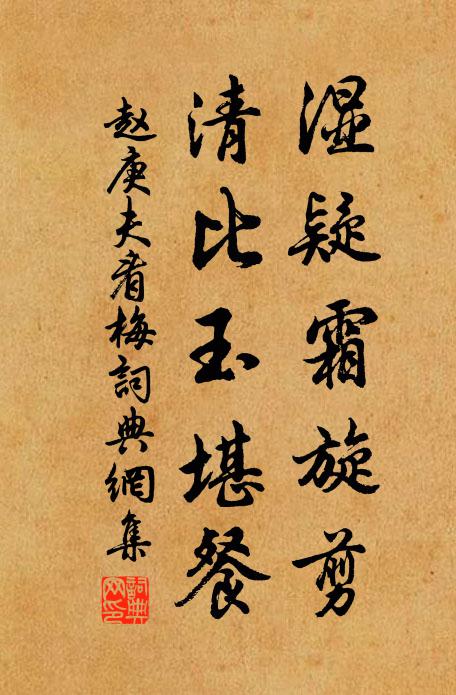 湿疑霜旋剪
清比玉堪餐
赵庚夫看梅詞典網集
詞典网印